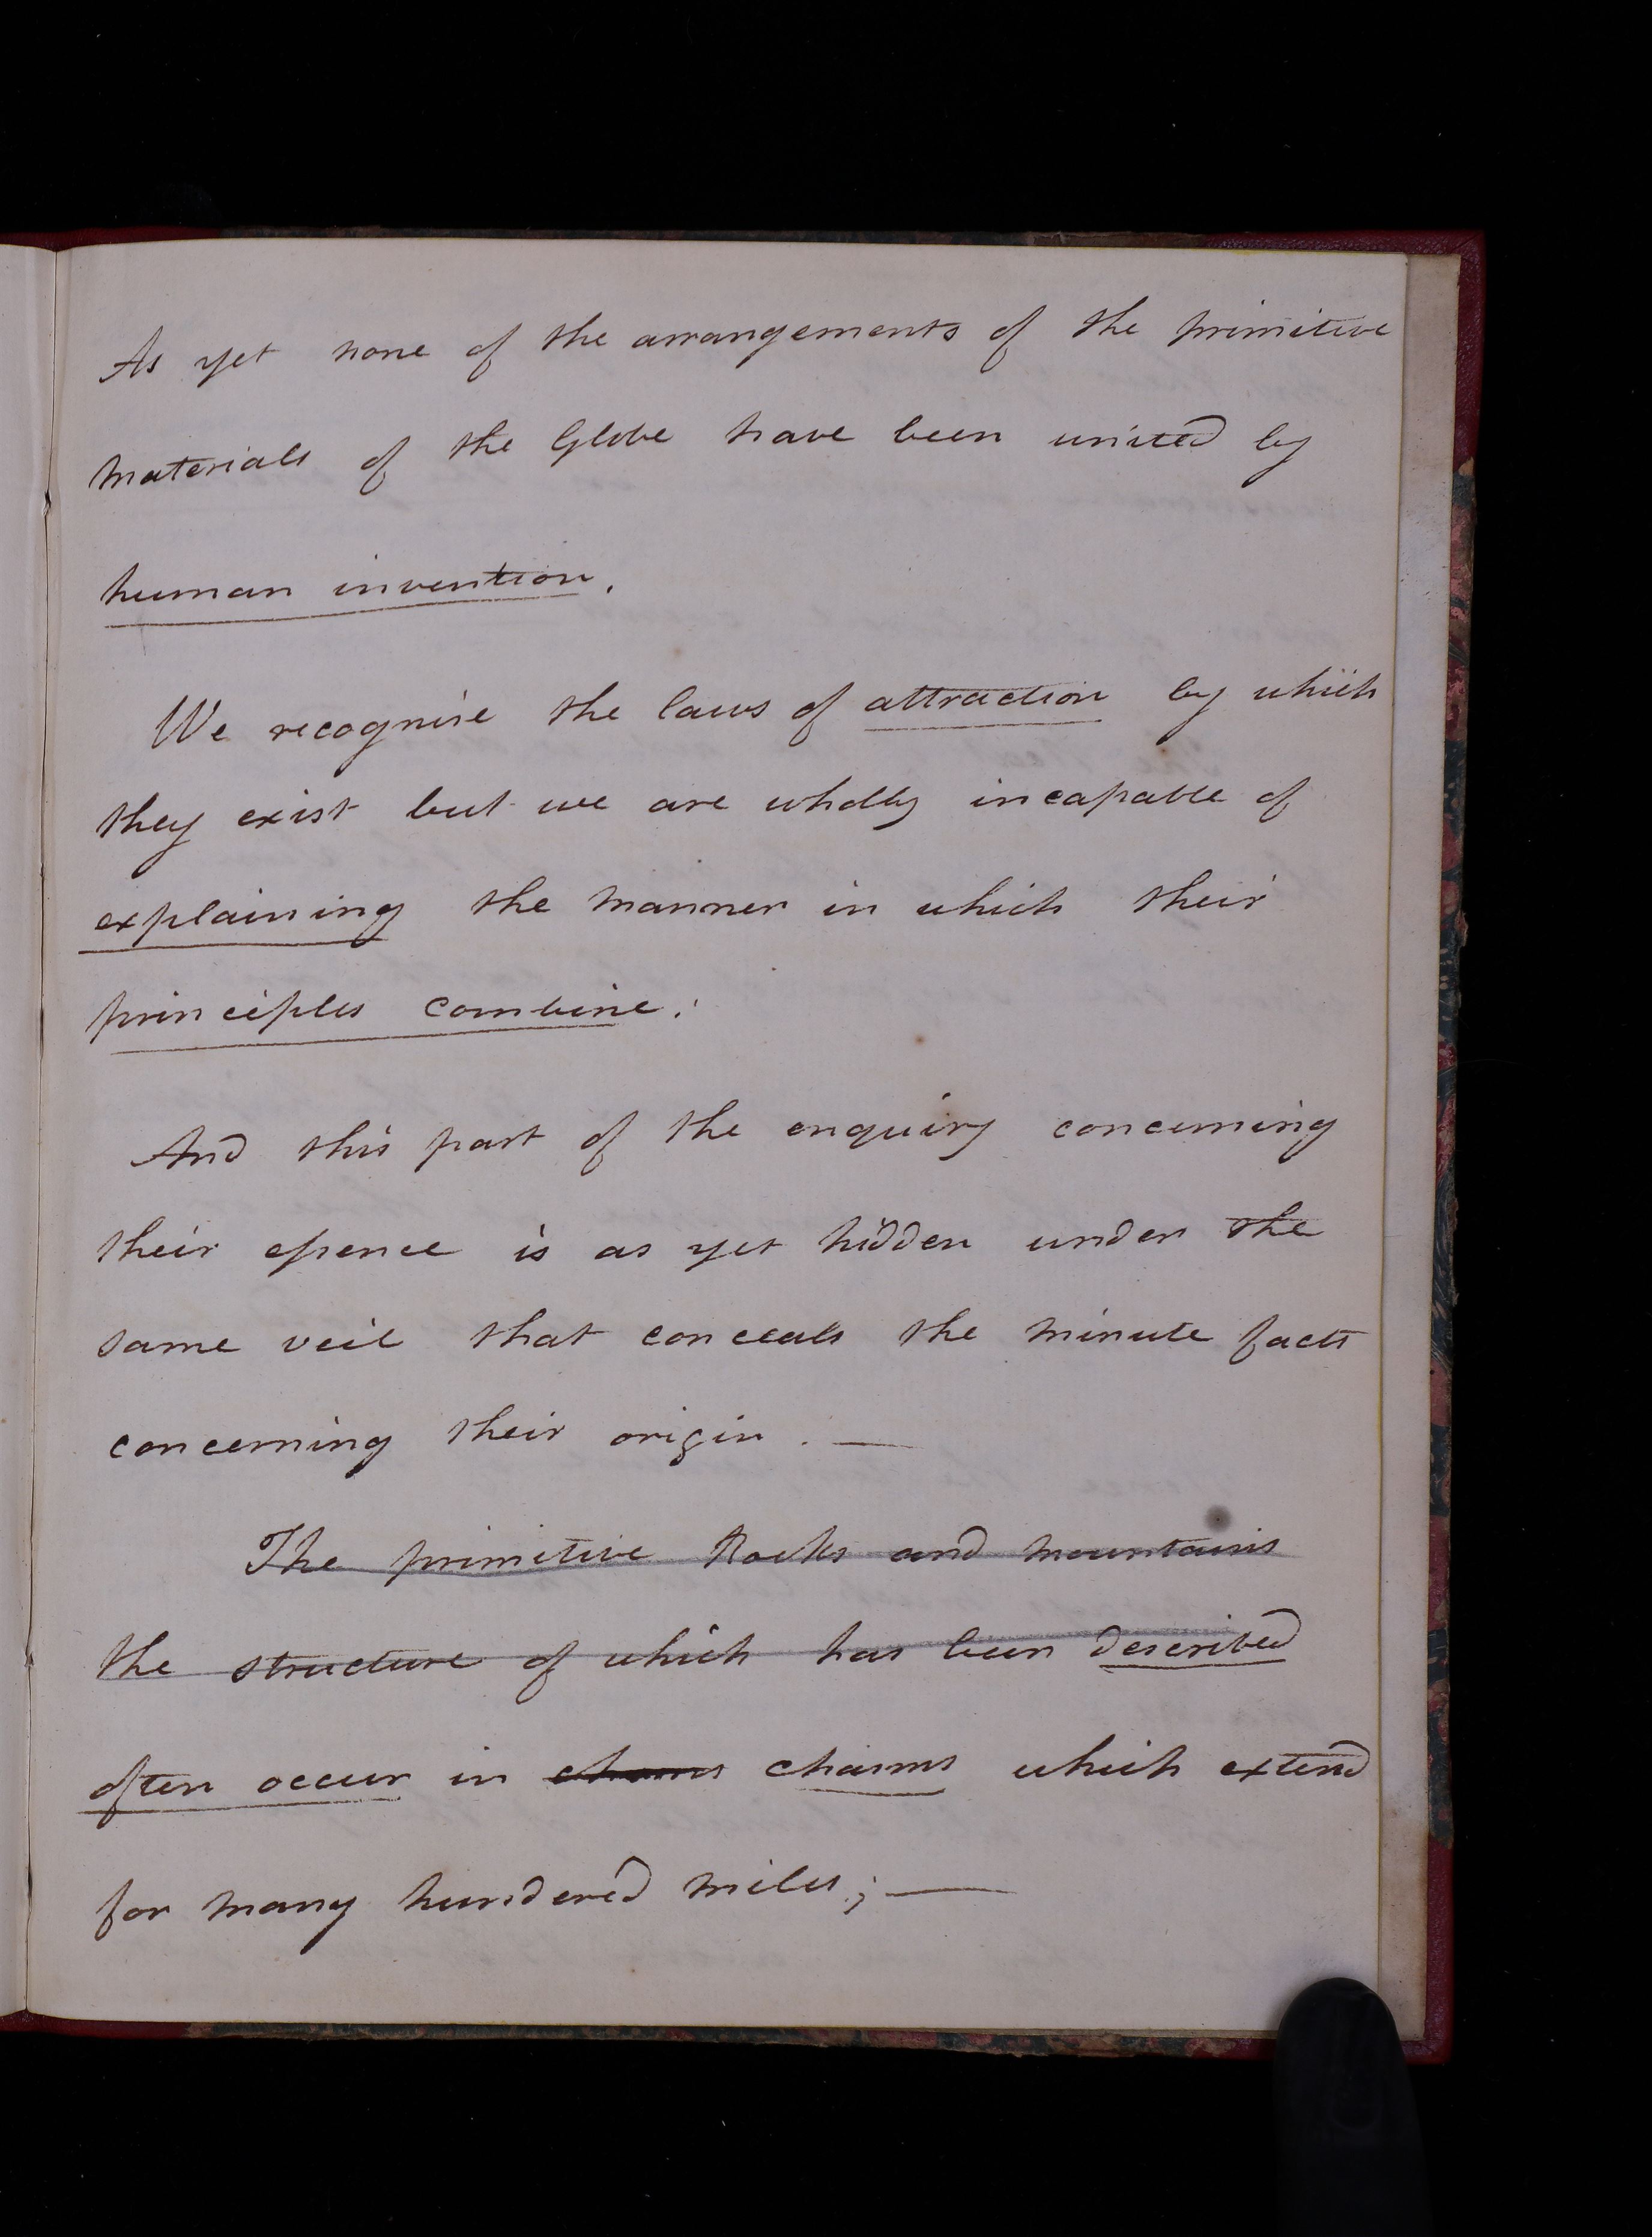 As yet none of the arrangements of the primitive
materials of the Globe have been united by
human invention.
We recognise the laws of attraction by which
they exist but we are wholly incapable of
explaining the manner in which their
principles combine:
And this part of the enquiry concerning
their essence is as yet hidden under the
same veil that conceals the minute facts
concerning their origin. —
The primitive Rocks and mountains
the structure of which has been described
often occur in chasms which extend
for many hundered miles; —